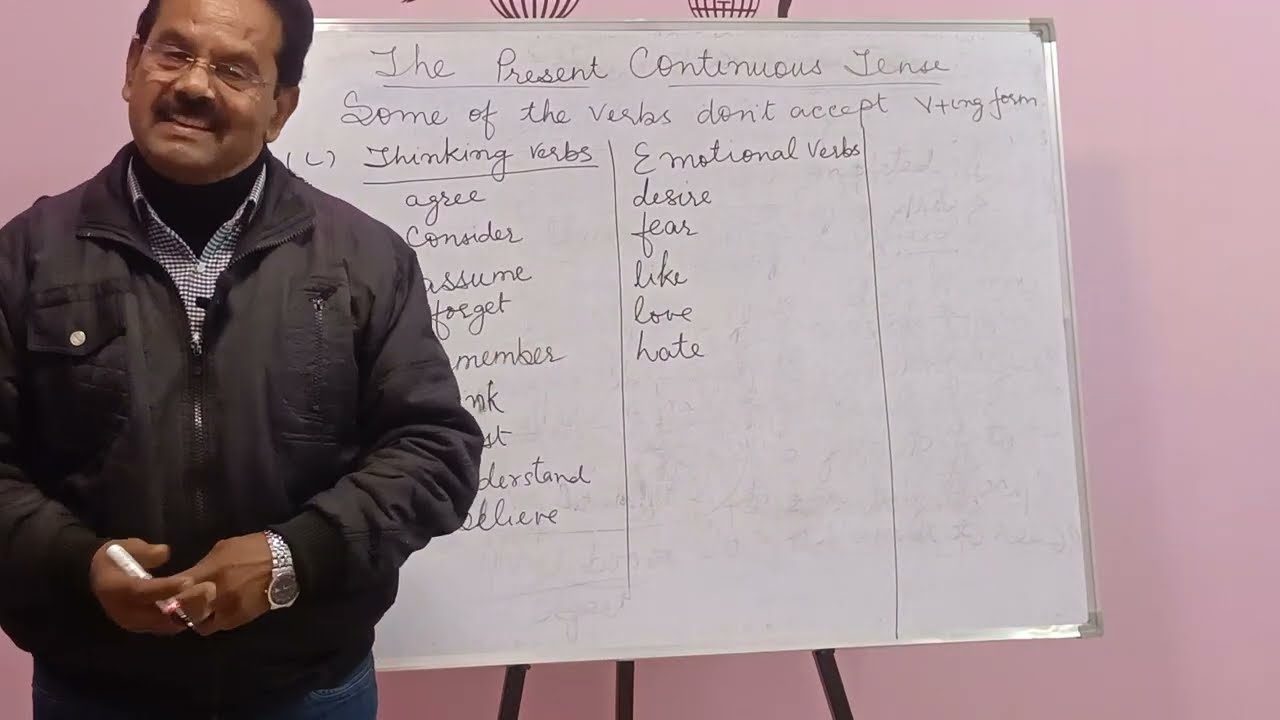 The Present Continuous Tense
Some of the verbs don't accept V+ing form
(C) Thinking verbs
agree
Consider
assume
forget
member
nk
st
derstand
believe
Emotional Verbs
desire
fear
like
love
hate